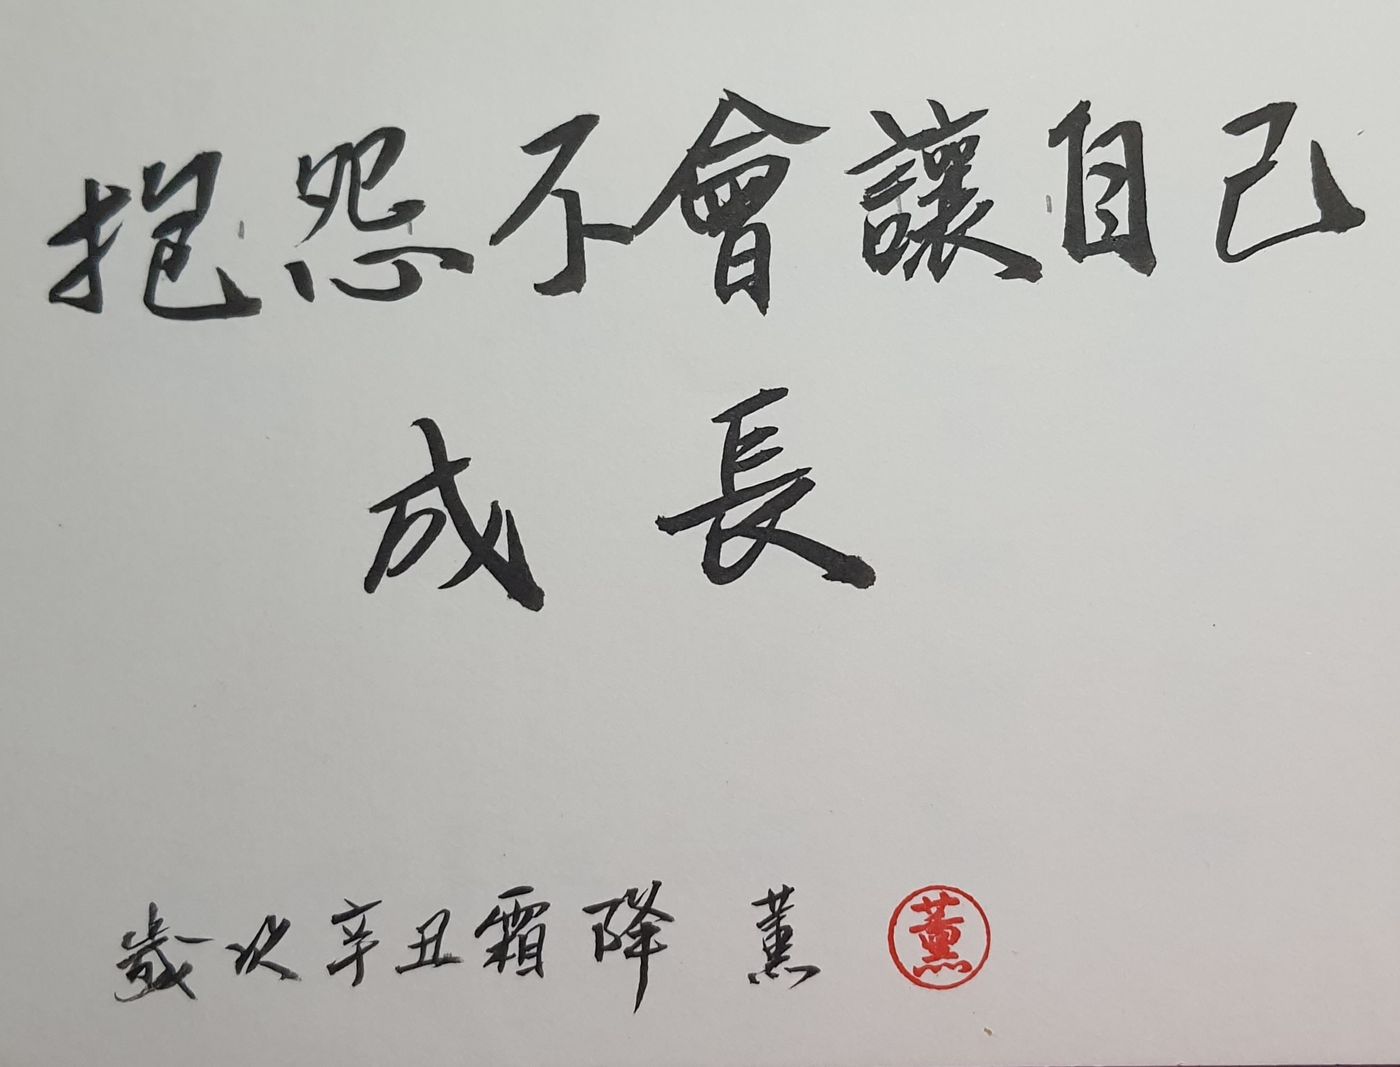 抱怨不會讓自己
成長
歲次辛丑霜降 薰 薰